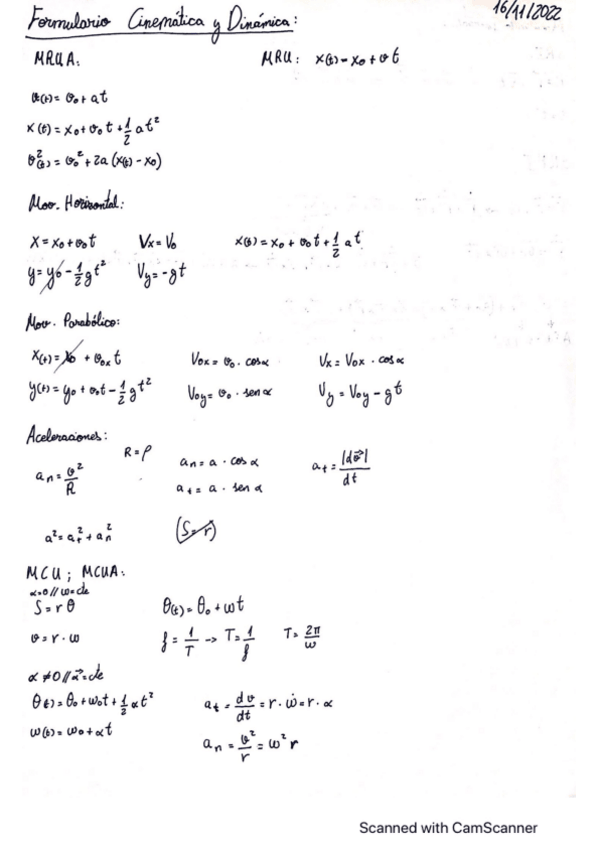 16/11/2022
Formulario Cinemática y Dinámica:
MRUA: MRU: x(t) = x₀ + v t
v(t) = v₀ + at
x(t) = x₀ + v₀ t + 1/2 at²
v²(t) = v₀² + 2a (x(t) - x₀)
Mov. Horizontal:
x = x₀ + v₀t Vx = V₀ x(t) = x₀ + v₀t + 1/2 at
y = y₀ - 1/2 gt² Vy = -gt
Mov. Parabólico:
x(t) = x₀ + v₀ₓ t V₀x = v₀ · cos α Vx = V₀x · cos α
y(t) = y₀ + v₀t - 1/2 gt² V₀y = v₀ · sen α Vy = V₀y - gt
Aceleraciones:
R = ρ
aₙ = v²/R aₙ = a · cos α aₜ = |dv⃗|/dt
aₜ = a · sen α
a² = aₜ² + aₙ² (S = r)
MCU ; MCUA:
α=0 // ω=cte
S = r θ θ(t) = θ₀ + ωt
v = r · ω f = 1/T -> T = 1/f T = 2π/ω
α ≠ 0 // α⃗ = cte
θ(t) = θ₀ + ω₀t + 1/2 αt² aₜ = dv/dt = r · ω̇ = r · α
ω(t) = ω₀ + αt aₙ = v²/r = ω² r
Scanned with CamScanner